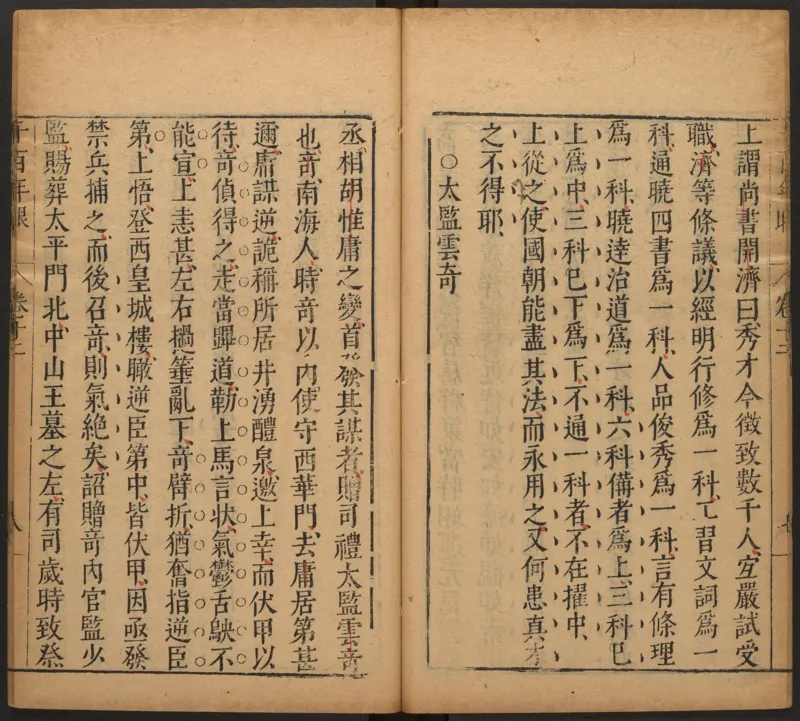 上謂尚書開濟曰秀才今徵致數千人宜嚴試受
職濟等條議以經明行修爲一科工習文詞爲一
科通曉四書爲一科人品俊秀爲一科言有條理
爲一科曉達治道爲一科六科備者爲上三科已
上爲中三科已下爲下不通一科者不在擢中
上從之使國朝能盡其法而永用之又何患真才
之不得耶
○太監雲奇
丞相胡惟庸之變首發其謀者贈司禮太監雲奇
也奇南海人時奇以內使守西華門去庸居第甚
邇庸謀逆詭稱所居井湧醴泉邀上幸而伏甲以
待奇偵得之走當蹕道勒上馬言狀氣鬱舌駃不
能宣上恚甚左右撾箠亂下奇臂折猶奮指逆臣
第上悟登西皇城樓瞰逆臣第中皆伏甲因亟發
禁兵捕之而後召奇則氣絶矣詔贈奇內官監少
監賜葬太平門北中山王墓之左有司歲時致祭
千百年眼
卷十二
八